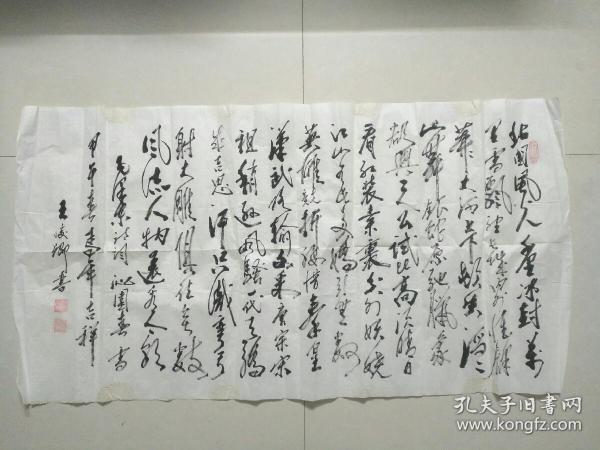 北国风光千里冰封万
里雪飘望长城内外惟余
莽莽大河上下顿失滔滔
山舞银蛇原驰腊象
欲与天公试比高须晴日
看红装素裹分外妖娆
江山如此多娇引无数
英雄竞折腰惜秦皇
汉武略输文采唐宗宋
祖稍逊风骚一代天骄
成吉思汗只识弯弓
射大雕俱往矣数
风流人物还看今朝
毛泽东诗词沁园春雪
甲午春 马年吉祥
王 书
孔夫子旧书网
www.kongfz.com